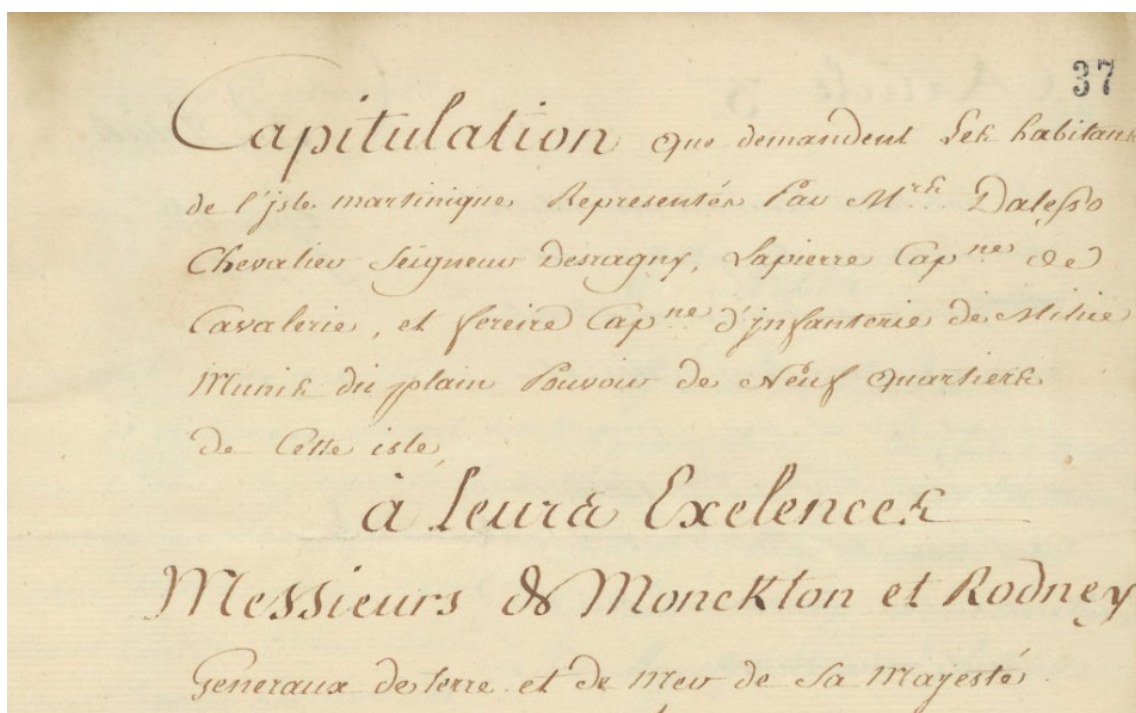 37
Capitulation que demandent Les habitans
de l'jsle martinique Representés Par Mrs. Dalesso
Chevalier Seigneur Desragny, Lapierre Capne de
Cavalerie, et fereire Capne d'jnfanterie de Milice
Munis du plain Pouvoir de Neuf quartiers
de Cette isle,
à Leurs Exelences
Messieurs de Monckton et Rodney
Generaux de terre et de Mer de Sa Majesté